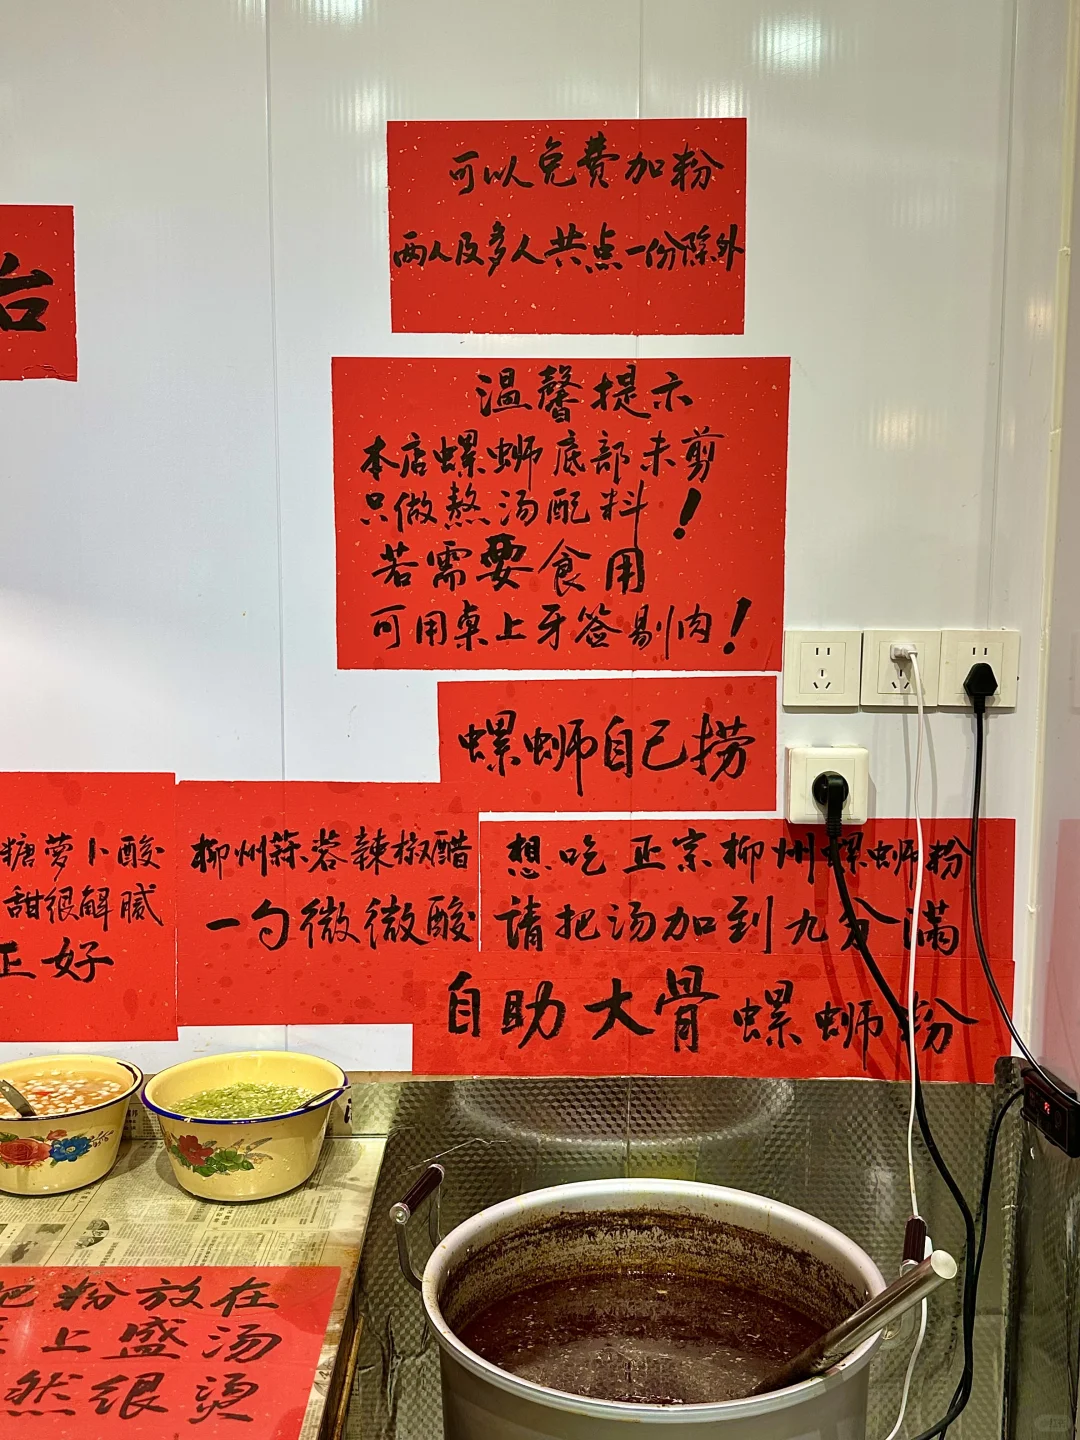 可以免费加粉
两人及多人共点一份除外
台
温馨提示
本店螺蛳底部未剪
只做熬汤配料！
若需要食用
可用桌上牙签剔肉！
螺蛳自己捞
糖萝卜酸
甜很解腻
正好
柳州蒜蓉辣椒醋
一勺微微酸
想吃正宗柳州螺蛳粉
请把汤加到九分满
自助大骨螺蛳粉
把粉放在
上盛汤
然很烫